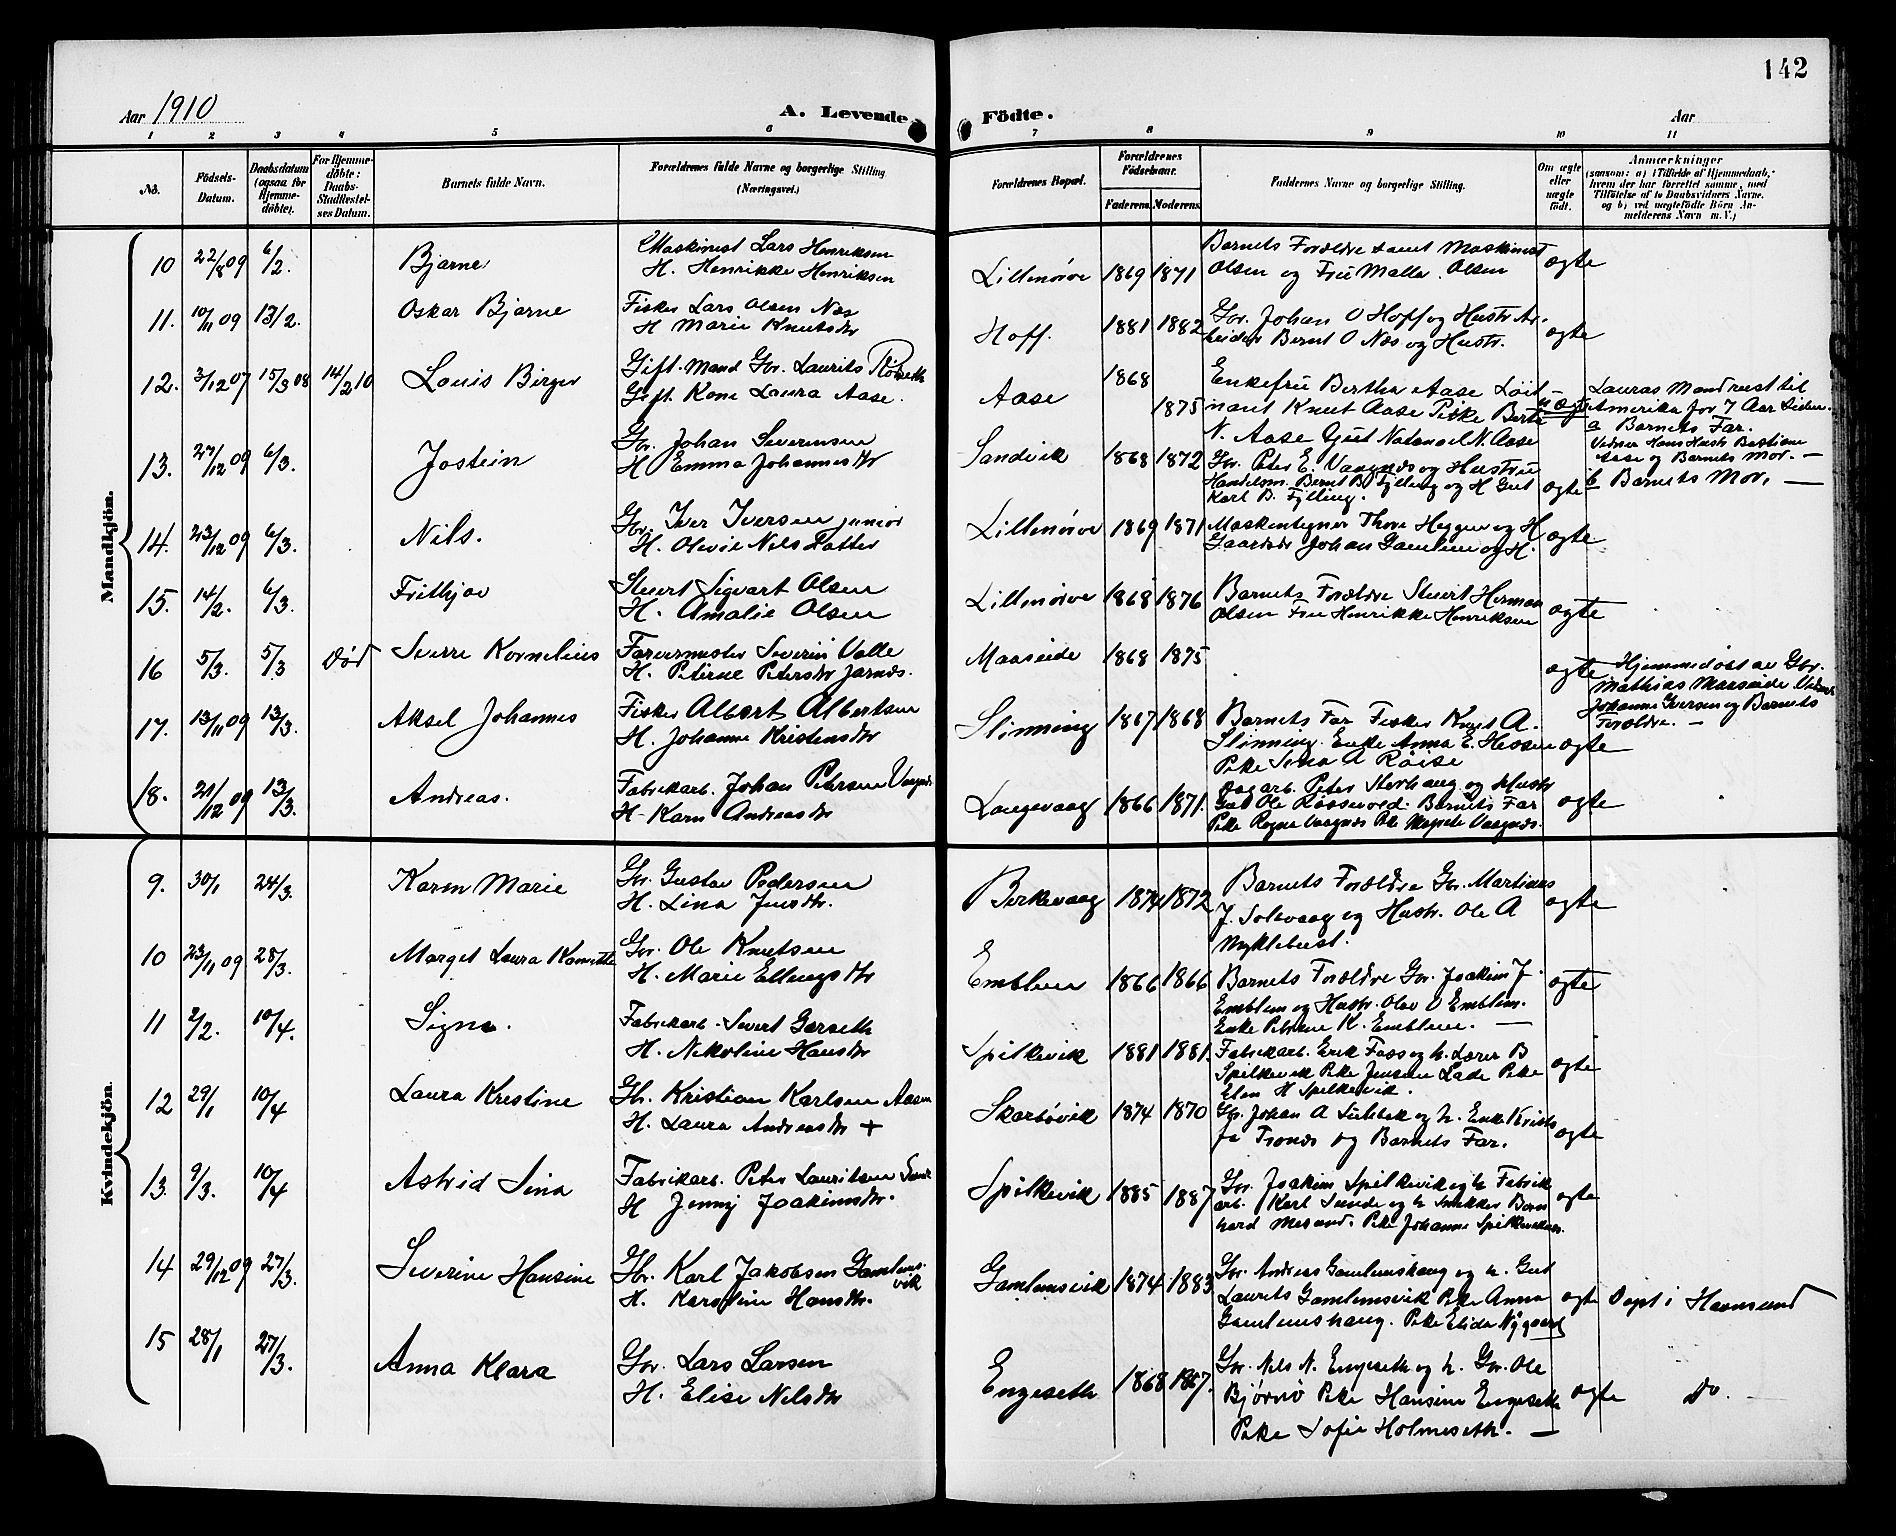 142
Aar 1910
A. Levende Födte.
Aar
1 2 3 4 5 6 7 8 9 10 11
No. Födsels-Datum. Daabsdatum (ogsaa for Hjemme-döbte). For Hjemme-döbte: Daabs-Stadfæstel-ses Datum. Barnets fulde Navn. Forældrenes fulde Navne og borgerlige Stilling (Næringsvei.) Forældrenes Bopæl. Forældrenes Födselsaar. Faderens. Moderens. Faddernes Navne og borgerlige Stilling. Om ægte eller uægte födt. Anmærkninger (saasom: a) i Tilfælde af Hjemmedaab, hvem der har forrettet samme, med Tilföielse af to Daabsvidners Navne. og b) ved uægtefödte Börn An-melderens Navn m. V.)
Mandkjön.
10 22/8 09 6/2. Bjarne Maskinist Lars Henriksen
H. Henrikke Henriksen
Lillenörve 1869 1871 Barnets Forældre samt Maskinist
Olsen og Fru Malla Olsen ægte
11. 10/11 09 13/2. Oskar Bjarne Fisker Lars Olsen Næs
H Marie Knutsdtr
Hoff. 1881 1882 Gbr. Johan O Hoff og Hustr Ar-
beider Bernt O Næs og Hustr. ægte
12. 3/12 07 15/3 08 14/2 10 Louis Birger Gift. Mand Gbr. Laurits Röseth
Gift. Kone Laura Aase.
Aase 1868 1875 Enkefru Bertha Aase Löit
nant Knut Aase Pike Berte
N. Aase Gut Natanael N. Aase
uægte Lauras Mand reist til
Amerika for 7 Aar siden.
a Barnets Far.
Vidner Hans Hustr Bastiane
Aase og Barnets Mor. —
b Barnets Mor. —
13. 27/12 09 6/3. Jostein Gbr. Johan Severinsen
H Emma Johannesdtr
Sandvik 1868 1872 Gbr. Peter E. Vaagnæs og Hustru
Handelsm. Bernt B. Fylling og H Gut
Karl B. Fylling. ægte
14. 23/12 09 6/3. Nils. Gbr. Iver Iversen junior
H. Olevie Nils Datter
Lillenörve 1869 1871 Maskintegner Thore Heggen og H
Gaardbr Johan Gamlem og H. ægte
15. 14/2. 6/3. Frithjov Stuert Sigvart Olsen
H. Amalie Olsen
Lillenörve 1868 1876 Barnets Forældre Stuert Herman
Olsen Fru Henrikke Henriksen ægte
16 5/3. 5/3 Död Sverre Kornelius Farvermester Severin Valle
H. Petrine Petersdtr Jarnæs.
Maaseide 1868 1875 ægte Hjemmedöbt av Gbr.
Mathias Maaseide Vidner
Johanne Iversen og Barnets
Forældre. —
17. 13/11 09 13/3. Aksel Johannes Fisker Albert Albertsen
H. Johanne Kristensdtr
Slinning 1867 1868 Barnets Far Fisker Knut A.
Slinning. Enke Anna E. Hessen
Pike Sina A Röise ægte
18. 21/12 09 13/3. Andreas. Fabrikarb. Johan Petersen Vaagnæs
H. Karn Andreasdtr
Langevaag 1866 1871. Peter Storhaug og Hustr
Gut Ole Barnets Far
Pike Ragna Vaagnæs Pike Magnete Vaagnæs. ægte
Kvindekjön.
9. 30/1 24/3. Karen Marie Gbr. Gustav Pedersen
H. Lina Jensdtr.
Birkevaag 1874 1872 Barnets Forældre Gbr. Martinus
J. Solevaag og Hustr. Ole A
Myklebust. ægte
10 23/11 09 28/3. Margit Laura Gbr. Ole Knutsen
H. Marie Ellingsdtr
Emblem 1866 1866 Barnets Forældre Gbr. Joakim J.
Emblem og Hustr. Olav O Emblem.
Enke Petrine K. Emblem. — ægte
11 2/2. 10/4. Signe. Fabrikarb. Sivert Garseth
H. Nikoline Hansdtr
Spilkevik 1881 1881. Fabrikarb. Erik Foss og h. Lærer B
Spilkevik Pike Jensine Lade Pike
Elen H Spilkevik. ægte
12 29/1 10/4 Laura Kristine Gbr. Kristian Karlsen Aasen
H. Laura Andreasdtr +
Skarbövik 1874 1870 Gbr. Johan A Sulebak og h. Enke Kristi
Tronæs og Barnets Far. ægte
13. 9/3. 10/4 Astrid Sina Fabrikarb. Peter Lauritsen Sunde
H Jenny Joakimsdtr.
Spilkevik 1885 1887. Gbr. Joakim Spilkevik og h Fabrik
arb. Karl Sunde og h Snekker Bern
hard Pike Johanne Spilkevik. ægte
14 29/12 09 27/3. Severine Hansine Gbr. Karl Jakobsen Gamlems-
vik
H. Karoline Hansdtr.
Gamlemsvik 1874 1883. Gbr. Andreas Gamlemshaug og h. Gut
Laurits Gamlemsvik Pike Anna
Gamlemshaug. Pike Elida Nygaard ægte Döpt i Havnsund
15 28/1 27/3. Anna Klara Gbr. Lars Larsen
H. Elise Nilsdtr
Engeseth 1868 1867. Gbr. Nils N. Engeseth og h. Gbr. Ole
Björnö Pike Hansine Engeseth
Pike Sofie Holmeseth. — ægte Do.